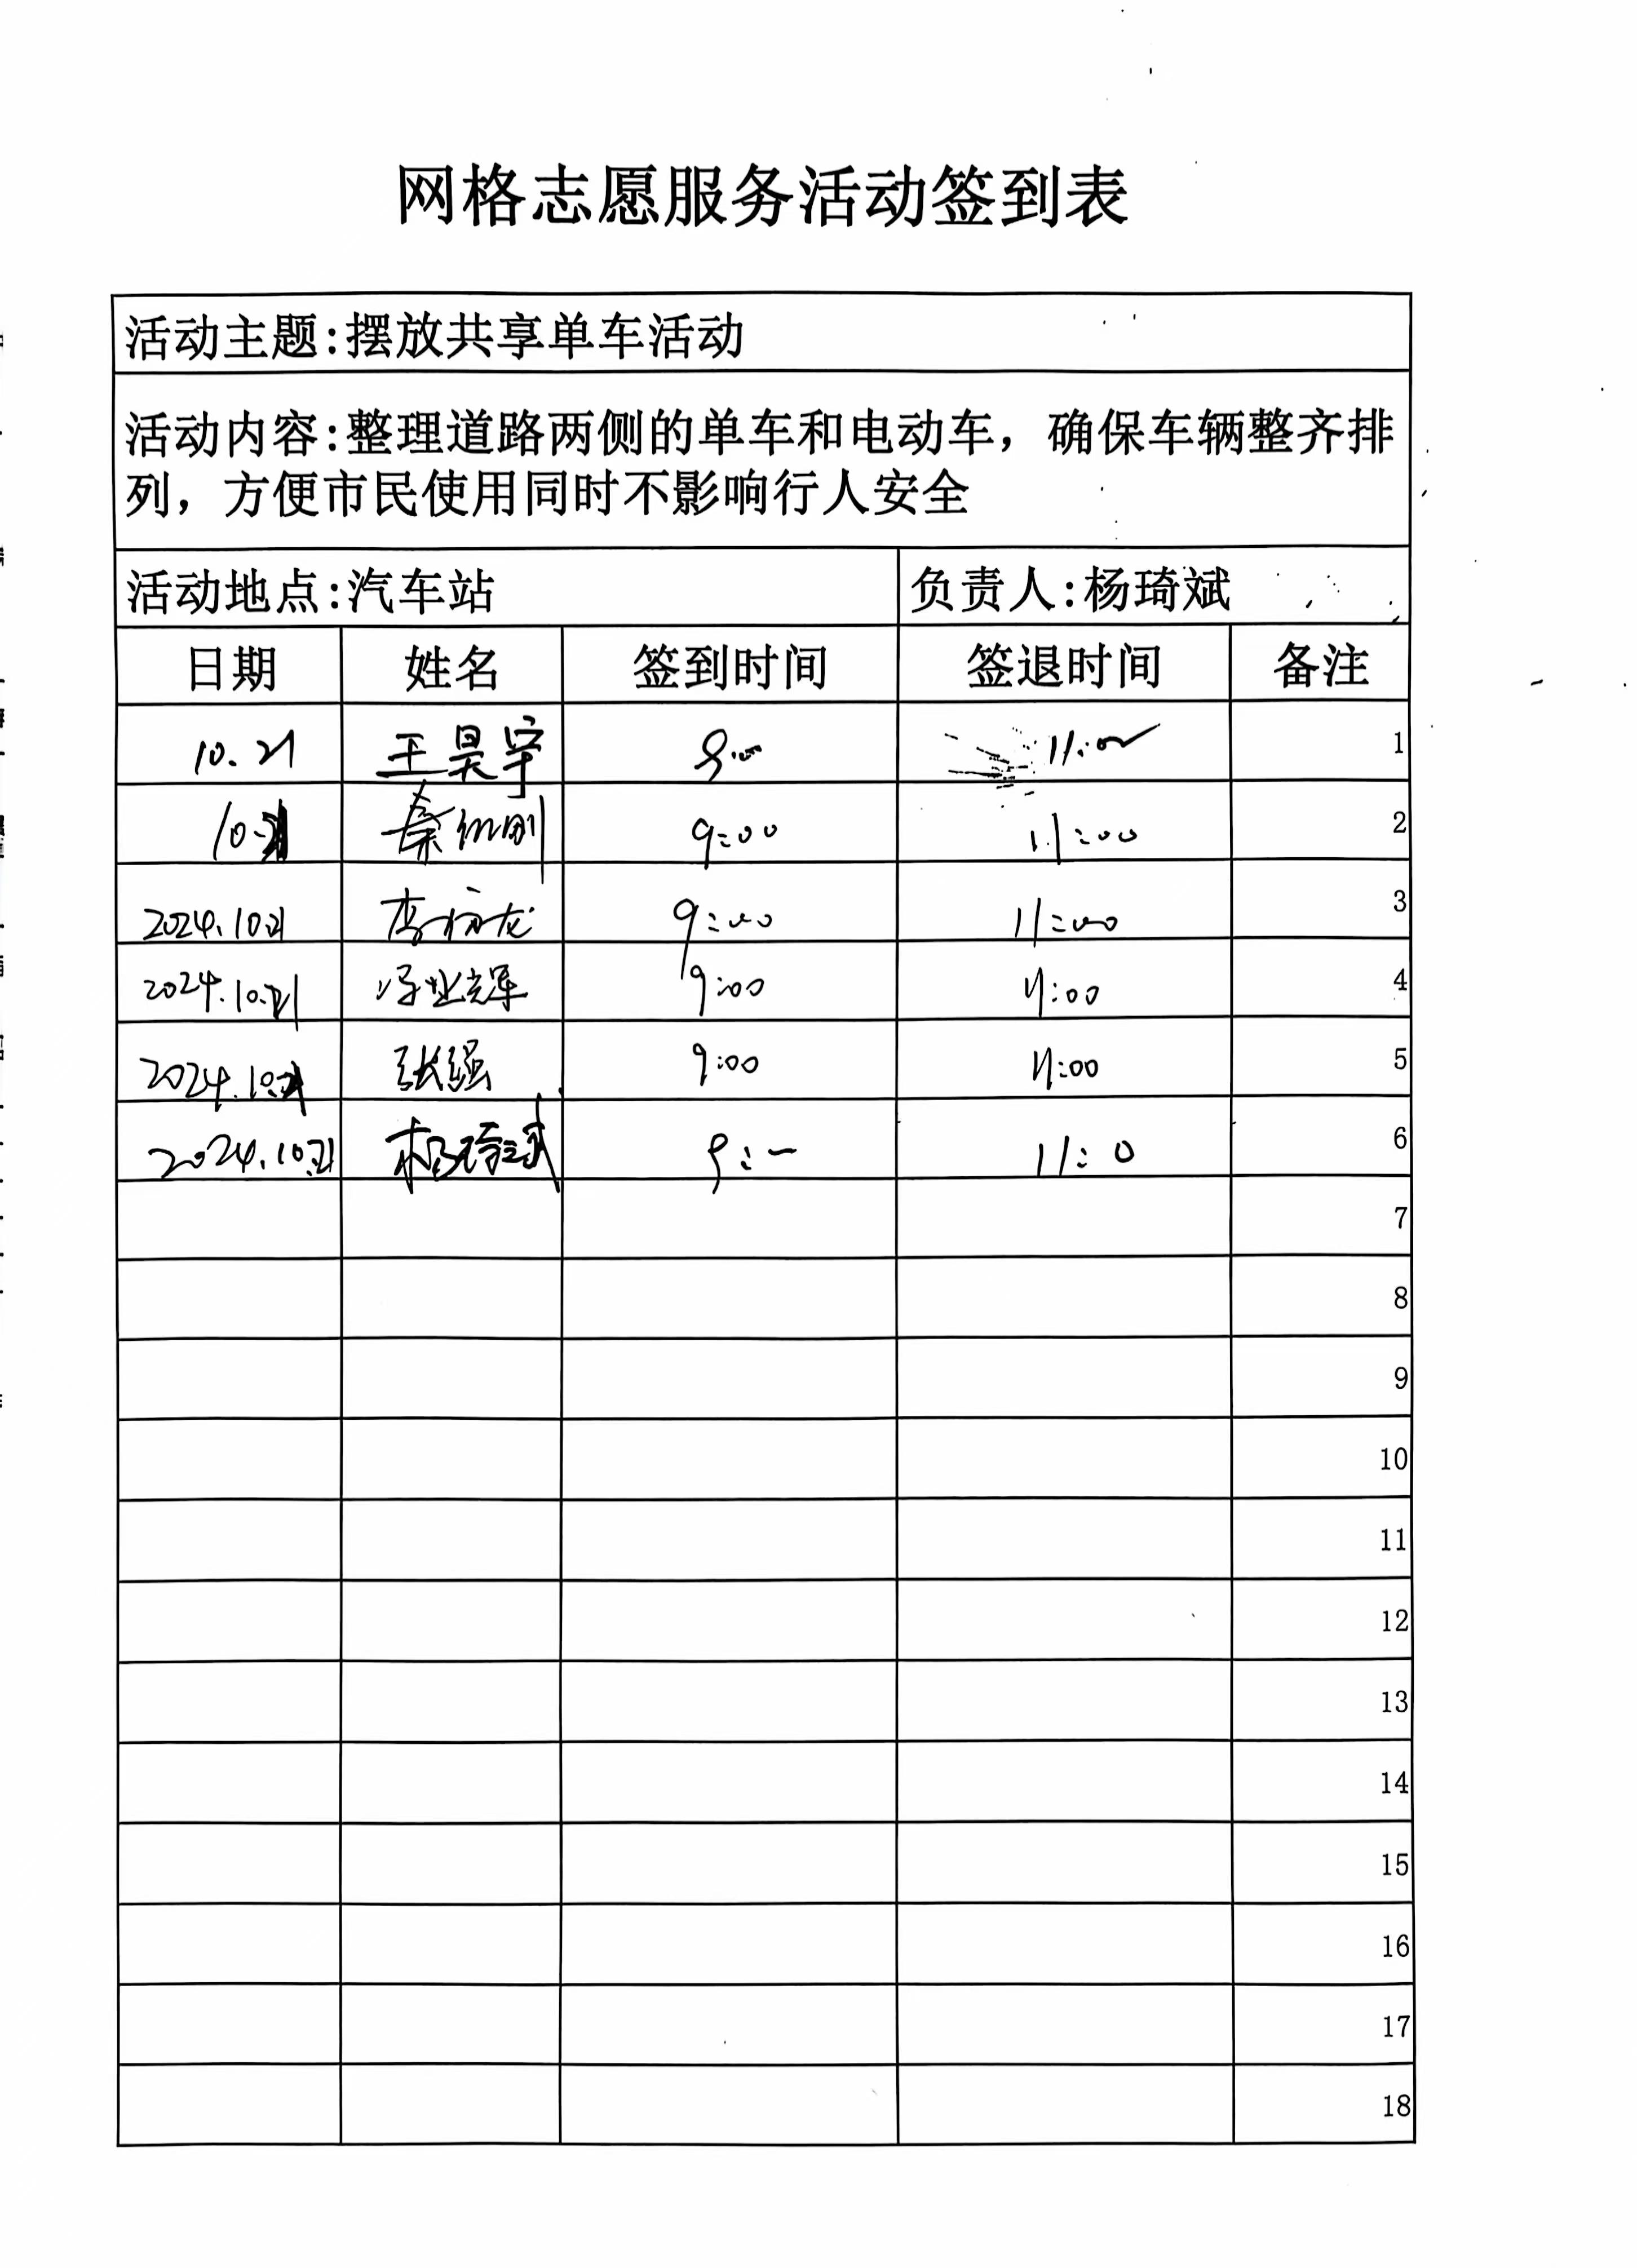 网格志愿服务活动签到表
活动主题:摆放共享单车活动
活动内容:整理道路两侧的单车和电动车，确保车辆整齐排
列，方便市民使用同时不影响行人安全
活动地点:汽车站 负责人:杨琦斌
日期 姓名 签到时间 签退时间 备注
10.21 王昊宇 9:00 11:00 1
10.21 9:00 11:00 2
2024.10.21 9:00 11:00 3
2024.10.21 9:00 11:00 4
2024.10.21 张强 9:00 11:00 5
2024.10.21 杨琦斌 9: 11:0 6
7
8
9
10
11
12
13
14
15
16
17
18